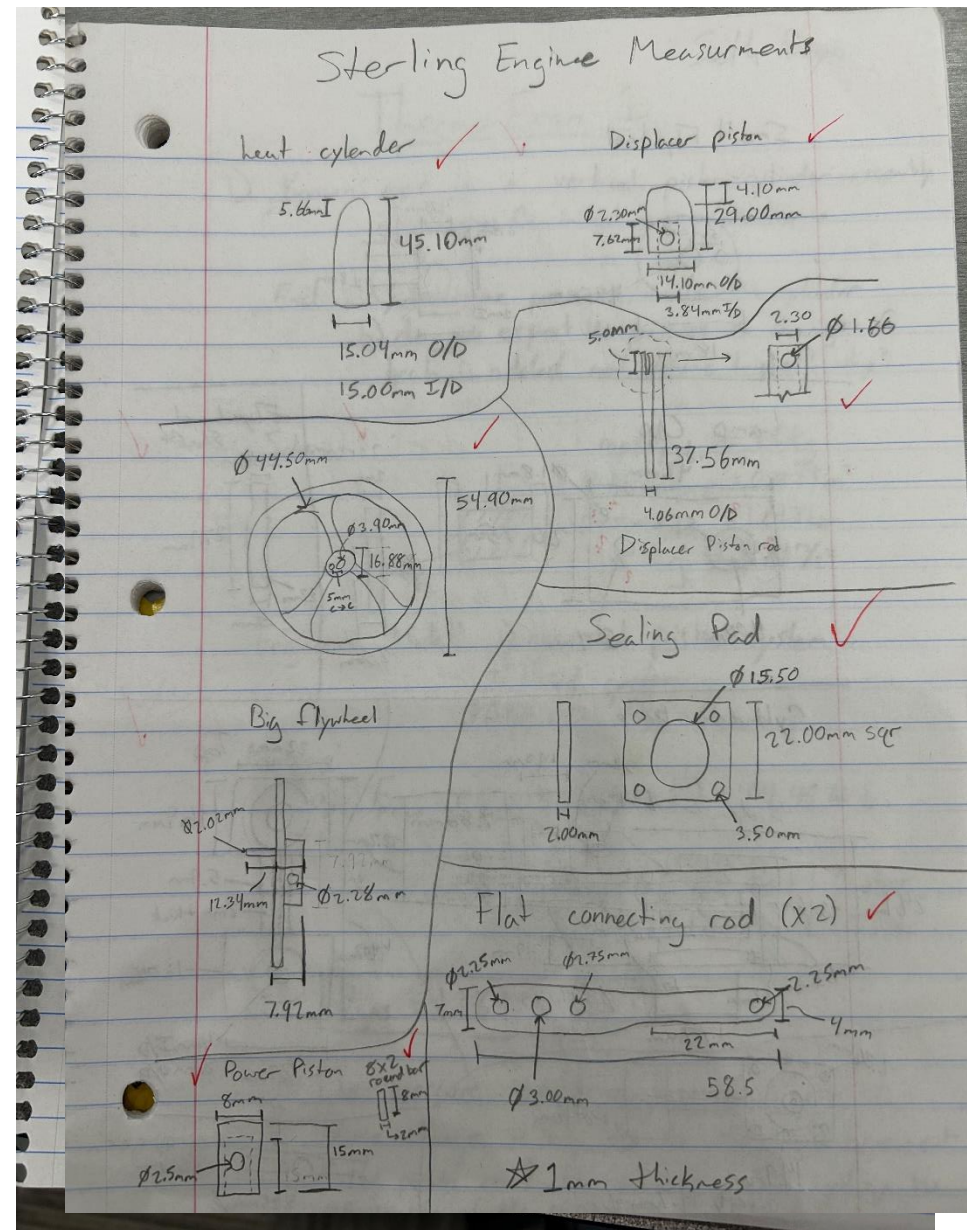 Sterling Engine Measurments
heat cylender
5.66mm
45.10mm
15.04mm O/D
15.00mm I/D
Displacer piston
4.10mm
29.00mm
Ø2.30mm
7.62mm
14.10mm O/D
3.84mm I/D
5.0mm
2.30
Ø1.66
37.56mm
4.06mm O/D
Displacer Piston rod
Ø44.50mm
54.90mm
Ø3.90mm
16.88mm
5mm
c→c
Big flywheel
Ø2.02mm
12.34mm
Ø2.28mm
7.92mm
Sealing Pad
Ø15.50
22.00mm sqr
2.00mm
3.50mm
Flat connecting rod (x2)
Ø2.25mm
Ø2.75mm
2.25mm
7mm
4mm
22mm
58.5
Ø3.00mm
☆ 1mm thickness
Power Piston
8mm
Ø2.5mm
15mm
15mm
8x2
round bar
8mm
2mm